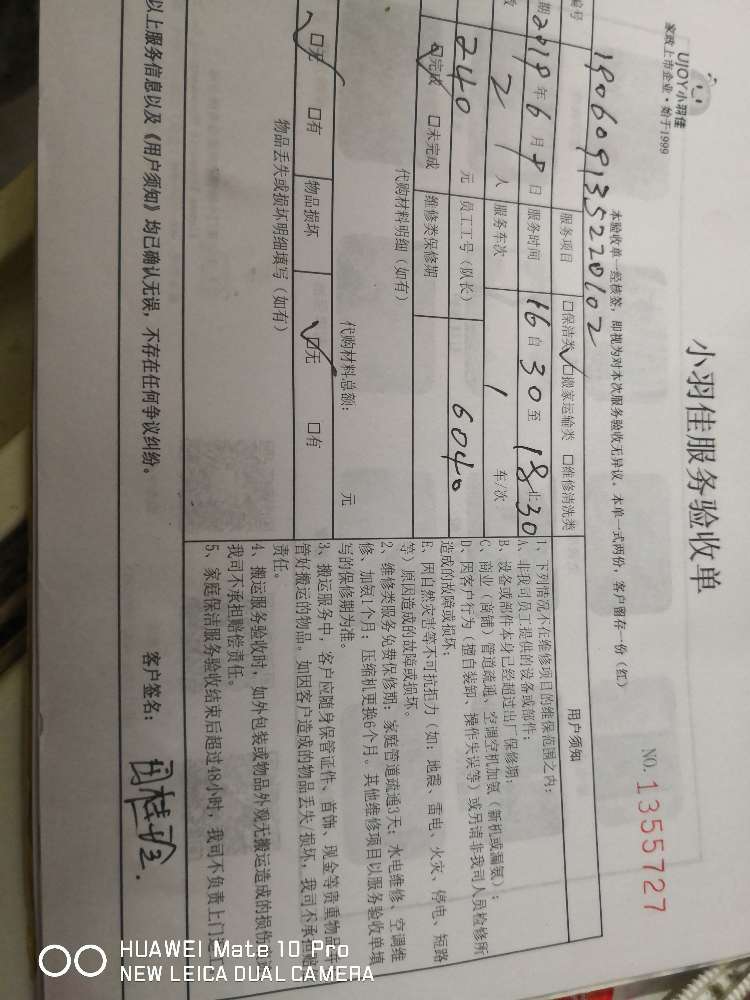 UJOY小羽佳
家政上市企业·始于1999
小羽佳服务验收单
NO. 1355727
本验收单一经核签，即视为对本次服务验收无异议。本单一式两份，客户留存一份（红）
编号
180609135220102
服务项目
□保洁类 □搬家运输类 □维修清洗类
期 2018 年 6 月 9 日
服务时间
16 自 30 至 18 止 30
数 2 人
服务车次
1 车/次
240 元
员工工号（队长）
6040
☑完成 □未完成
维修类保修期
代购材料明细（如有）
代购材料总额： 元
□无 □有
物品损坏
□无 □有
物品丢失或损坏明细填写（如有）
用户须知
1、下列情况不在维修项目的维保范围之内：
A、非我司员工提供的设备或部件；
B、设备或部件本身已经超过出厂保修期；
C、商业（商铺）管道疏通、空调空机加氨（新机或漏氨）；
D、因客户行为（擅自装卸、操作失误等）或另请非我司人员检修所
造成的故障或损坏；
E、因自然灾害等不可抗拒力（如：地震、雷电、火灾、停电、短路
等）原因造成的故障或损坏。
2、维修类服务免费保修期：家庭管道疏通3天；水电维修、空调维
修、加氨1个月；压缩机更换6个月。其他维修项目以服务验收单填
写的保修期为准。
3、搬运服务中，客户应随身保管证件、首饰、现金等贵重物品
管好搬运的物品。如因客户造成的物品丢失/损坏，我司不承担赔
责任。
4、搬运服务验收时，如外包装或物品外观无搬运造成的损伤
我司不承担赔偿责任。
5、家庭保洁服务验收结束后超过48小时，我司不负责上门
以上服务信息以及《用户须知》均已确认无误，不存在任何争议纠纷。
客户签名：
HUAWEI Mate 10 Pro
NEW LEICA DUAL CAMERA